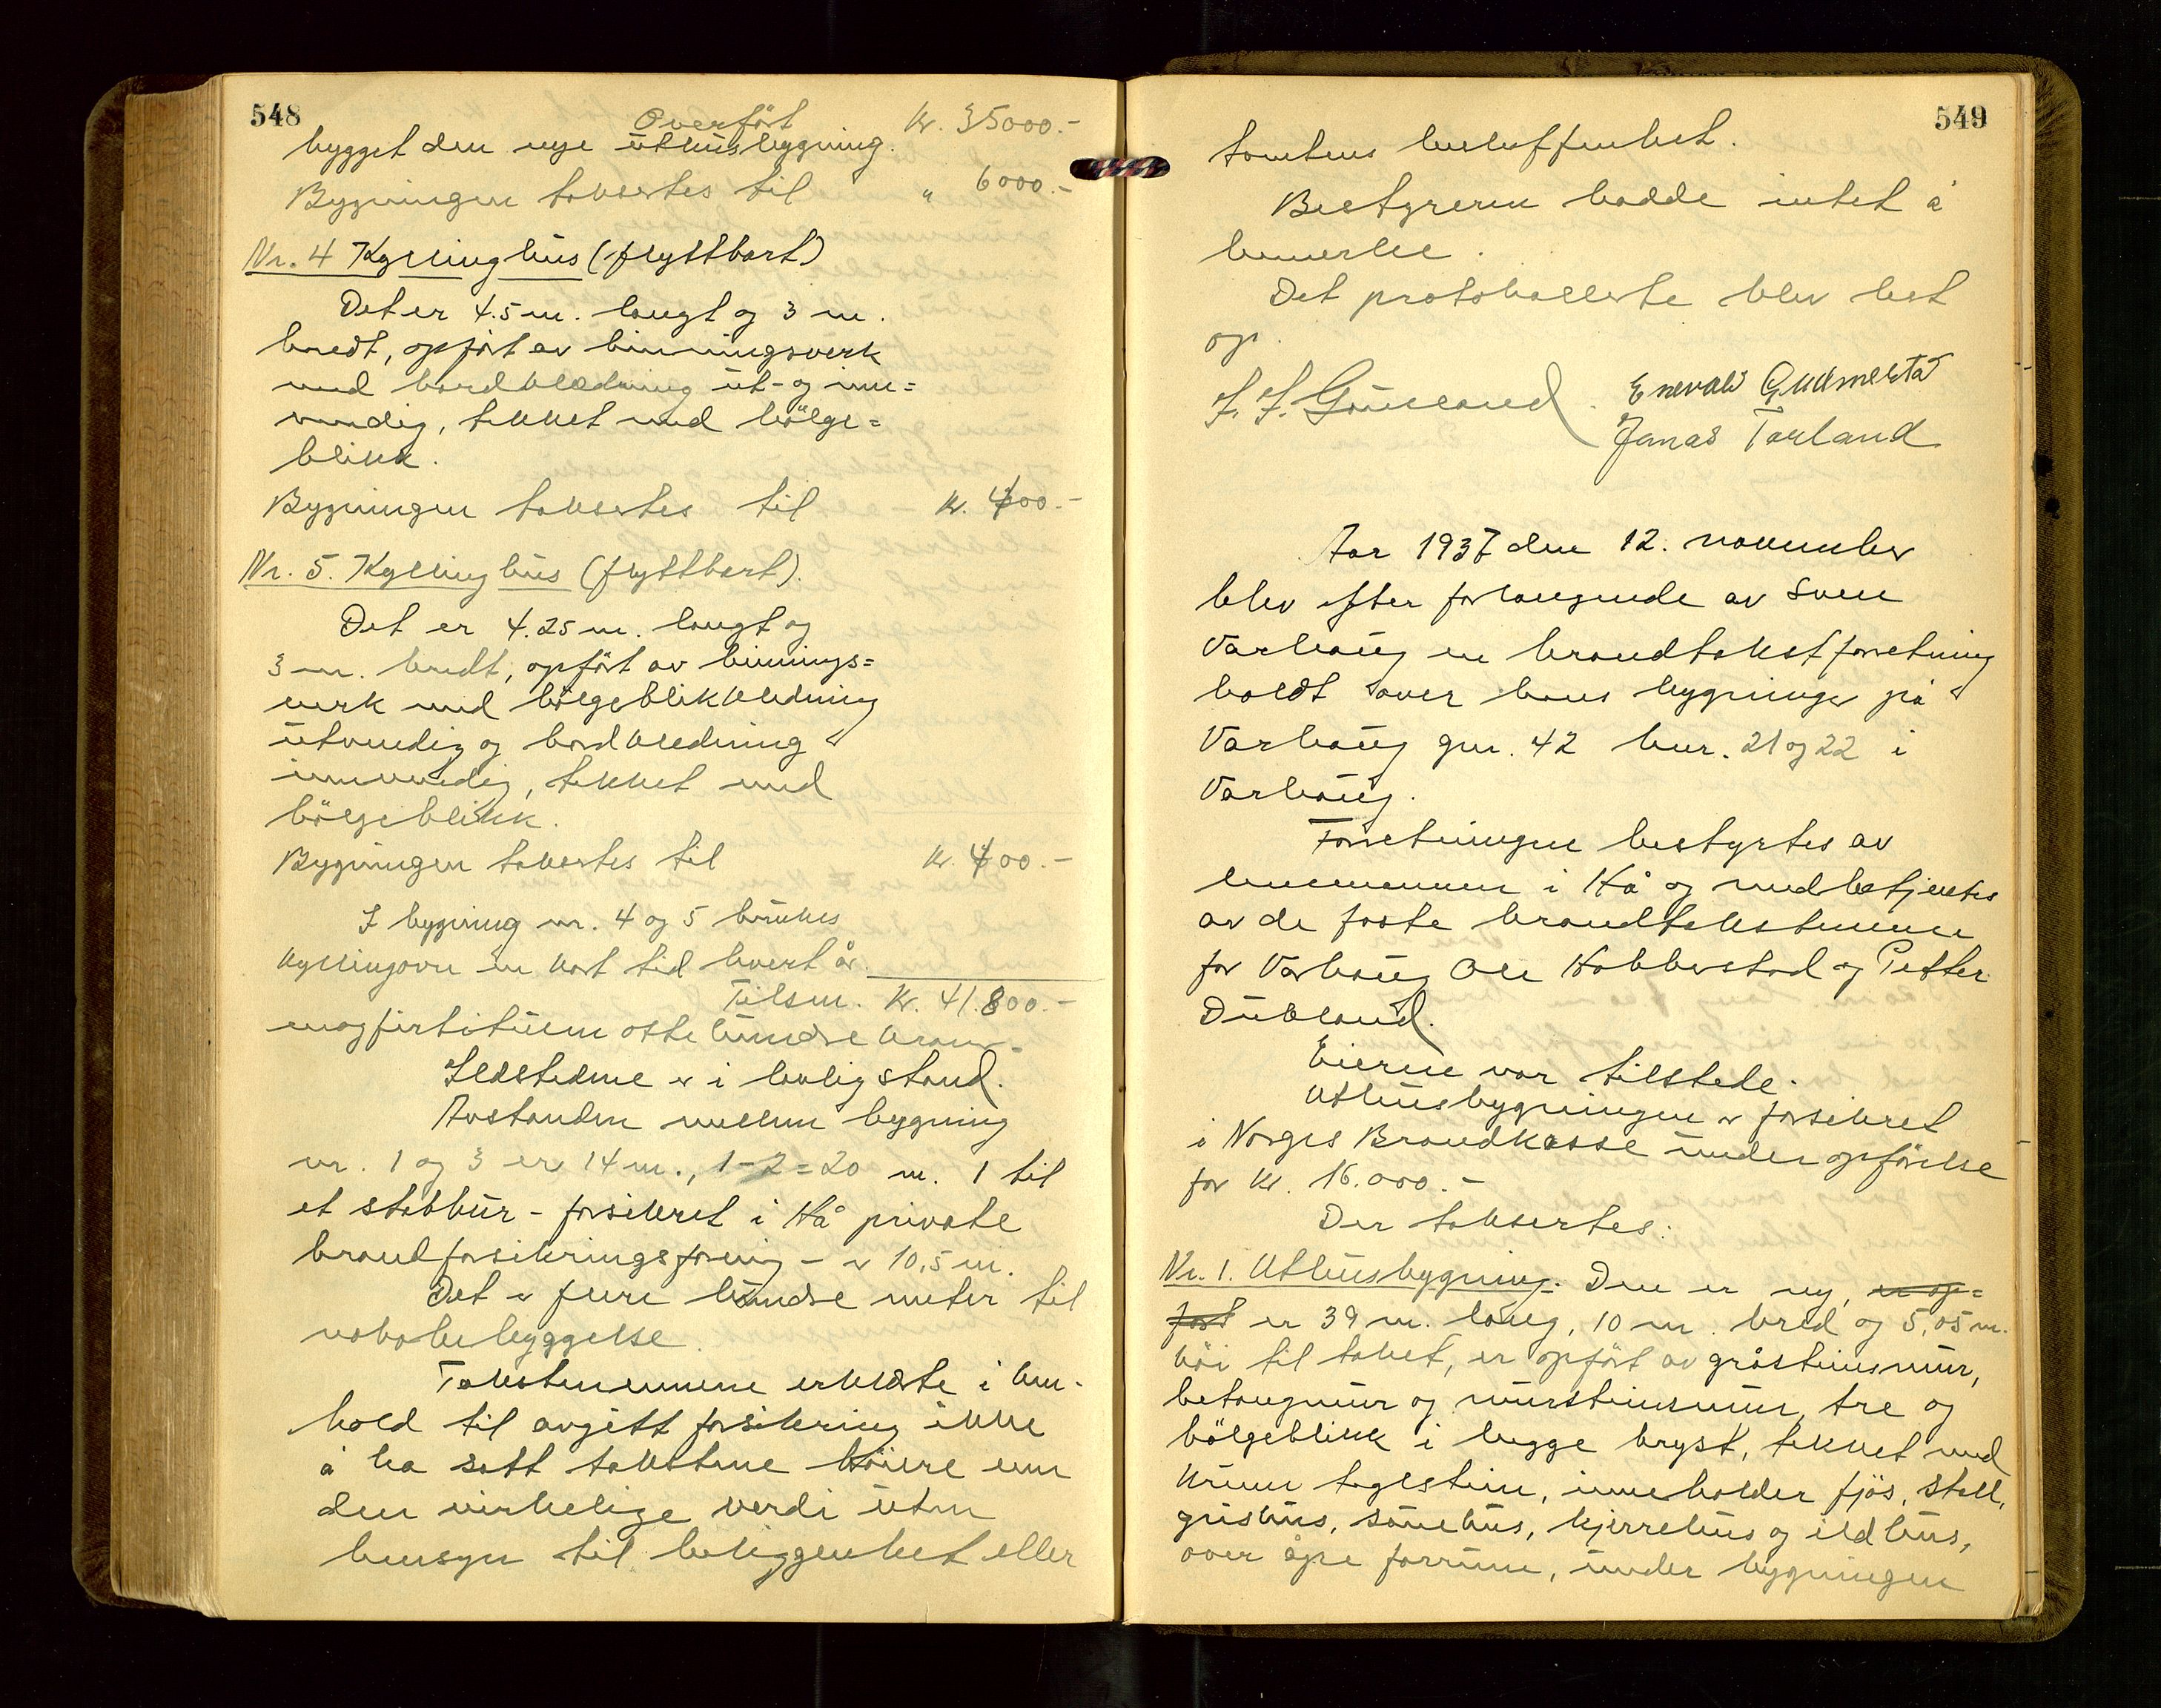 548
Overfört Kr. 35000.-
bygget den nye uthusbygning.
Bygningen taksertes til " 6000.-
Nr. 4 Kyllinghus (flyttbart)
Det er 4.5 m. langt og 3 m.
bredt, opført av binningsverk
med bordklædning ut- og inn=
vendig, tekket med bölge=
blikk.
Bygningen taksertes til Kr. 400.-
Nr. 5. Kyllinghus (flyttbart).
Det er 4.25 m. langt og
3 m. bredt, opfört av binnings=
verk med bölgeblikkledning
utvendig og bordkledning
innvendig, tekket med
bölgeblikk.
Bygningen taksertes til Kr. 400.-
I bygning nr. 4 og 5 brukes
kyllingovn en kort tid hvert år.
Tilsm. Kr. 41.800.-
enogførtituen otte hundre kroner.
Ildstedene er i lovlig stand.
Avstanden mellem bygning
nr. 1 og 3 er 14 m., 1-2 = 20 m. 1 til
et stabbur - forsikret i Hå private
brandforsikringsforenig - er 10,5 m.
Det er flere hundre meter til
nabobebyggelse.
Takstmennene erklærte i hen-
hold til avgitt forsikring ikke
å ha satt takstene höiere enn
den virkelige verdi uten
hensyn til beliggenhet eller
549
tomtens beskaffenhet.
Bestyreren hadde intet å
bemerke.
Det protokollerte blev lest
op.
Enevald Gudmestad
Jonas Torland
Aar 1937 den 12. november
blev efter forlangende av Sven
Varhaug en brandtakstforretning
holdt over hans bygninger på
Varhaug gnr. 42 bnr. 21 og 22 i
Varhaug.
Forretningen bestyrtes av
lensmannen i Hå og medbetjentes
av de faste brandtakstmenn
for Varhaug Ole Hobberstad og Petter
Dubland.
Eieren var tilstede.
Uthusbygningen er forsikret
i Norges Brandkasse under opförelse
for Kr. 16.000.-
Der taksertes:
Nr. 1. Uthusbygning. Den er ny, er op=
fört er 39 m. lang, 10 m. bred og 5,05 m.
höi til taket, er opfört av gråsteinsmur,
betongmur og mursteinsmur, tre og
bölgeblikk i begge bryst, tekket med
krum teglstein, inneholder fjös, stall,
grishus, sauehus, kjerrehus og ildhus,
over åpne forrum, under bygningen